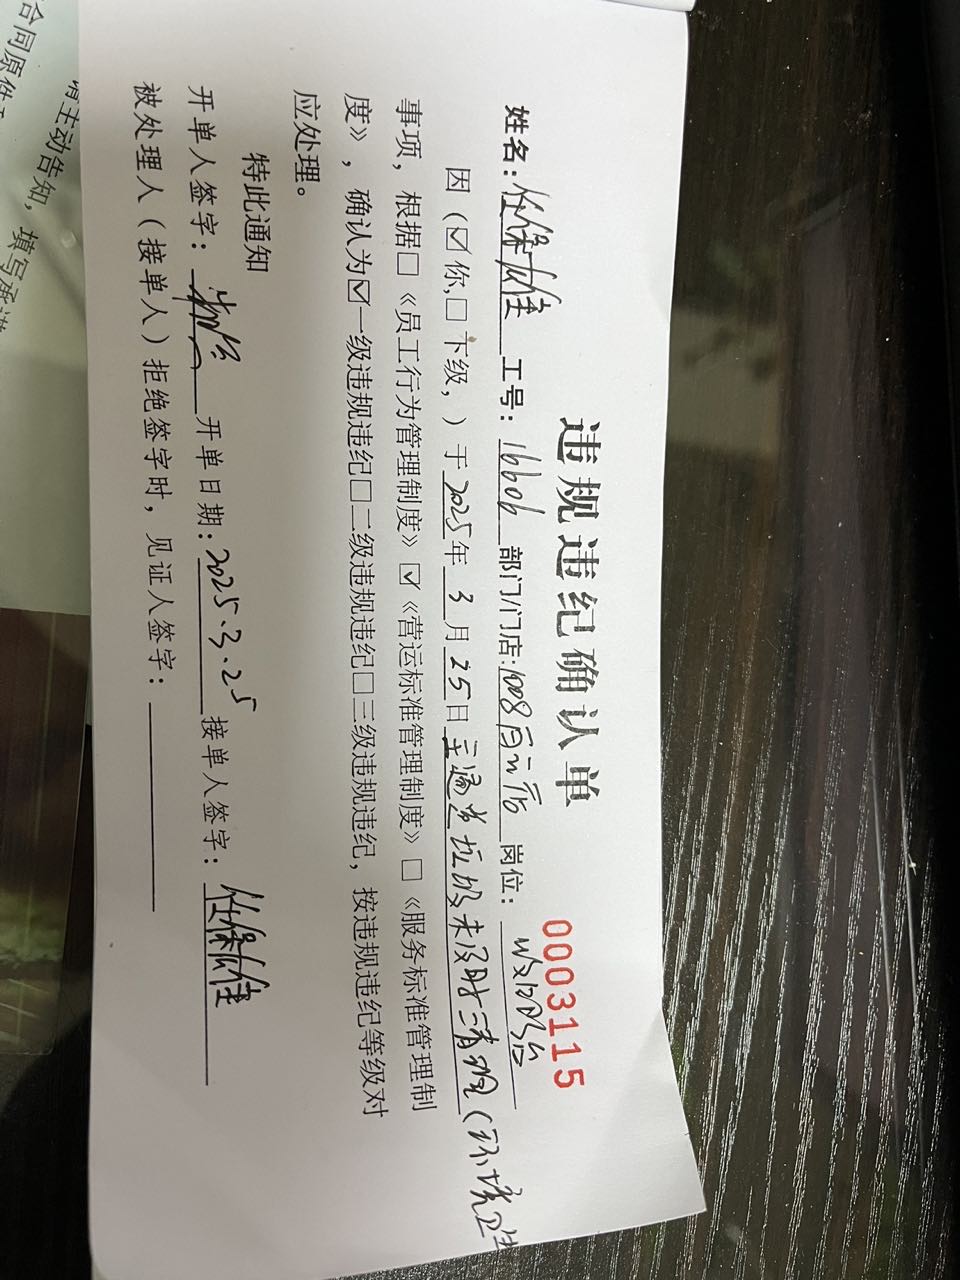 违规违纪确认单
0003115
姓名：任保佳 工号：16606 部门/门店：1008 岗位：
因（☑你，□下级，）于2025年3月25日主通道垃圾未及时清理（环境卫生
事项，根据□《员工行为管理制度》☑《营运标准管理制度》□《服务标准管理制
度》，确认为☑一级违规违纪□二级违规违纪□三级违规违纪，按违规违纪等级对
应处理。
特此通知
开单人签字： 开单日期：2025.3.25 接单人签字：任保佳
被处理人（接单人）拒绝签字时，见证人签字：
请主动告知，填写
合同原件